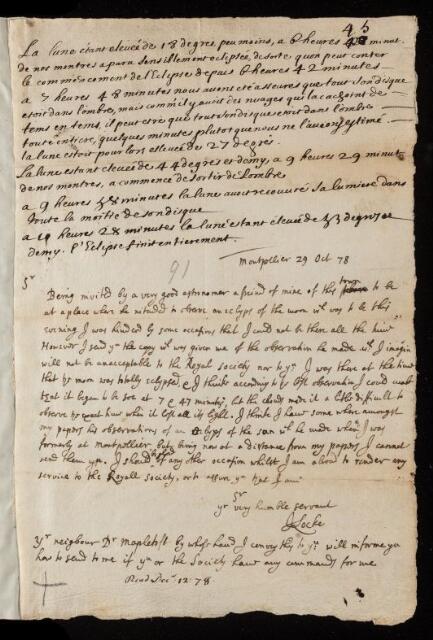 45
La lune étant elevée de 18 degres peu moins, a 6 heures minut.
de nos montres a paru sensiblement eclipsée, de sorte qu'on peut conter
le commencement de l'Eclipse depuis 6 heures 42 minutes
a 7 heures 48 minutes nous avons eté asseures que tout son disque
estoit dans l'ombre, mais comme il y avoit des nuages qui la cachoint de
tems en tems, il peut etre que tout son disque entroit dans l'ombre
toute entiere, quelques minutes plutot que nous ne l'avons estimé.
la lune estoit pour lors ellevée de 27 degrés.
La lune estant elevée de 44 degrès et demy, a 9 heures 29 minut
de nos montres, a commencé de sortir de l'ombre
a 9 heures minutes la lune avoit recouvré sa lumiere dans
toute la moitie de son disque
a heures 28 minutes la lune estant elevée de degrés et
demy. l'Eclipse finit entierement.
91
Montpellier 29 Oct 78
Sr
Being invited by a very good astronomer a friend of mine of this town to be
at a place where he intended to observe an eclyps of the moon wch was to be this
evening I was hindred by some occasions that I could not be there all the time
However I send yu the copy wch was given me of the observation he made wch I imagin
will not be unacceptable to the Royal Society nor to yu. I was there at the time
that ye moon was totally eclypsed, & I thinke according to ye best observation I could make
that it began to be soe at 7 & 47 minutes, but the clouds made it a little difficult to
observe ye exact time when it lost all its light. I thinke I have some where amongst
my papers his observations of an eclyps of the sun wch he made when I was
formerly at Montpellier but being now at a distance from my papers I cannot
send them yu. I should be glad any other occasion whilst I am abroad to render any
service to the Royall Society, or to assure yu that I am
Sr
yr very humble servant
JLocke
Yr neighbour Dr Mapletoft by whose hand I convey this to yu will informe yu
how to send to me if yu or the Society have any commands for me
Read Decr. 12: 78.